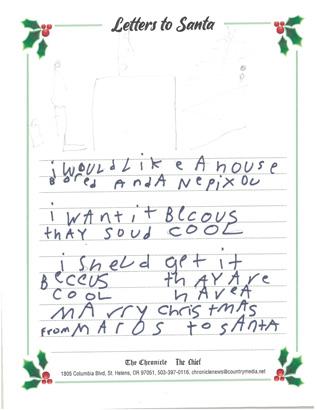 Letters to Santa
i WOULd Like A house
Bored AndA Nepixou
i WAnt it Becous
thAY soud COOL
i sheld get it
Beccus thAYAre
COOL hAveA
MArry christmas
from MAros to sAntA
The Chronicle The Chief
1805 Columbia Blvd, St. Helens, OR 97051, 503-397-0116, chroniclenews@countrymedia.net